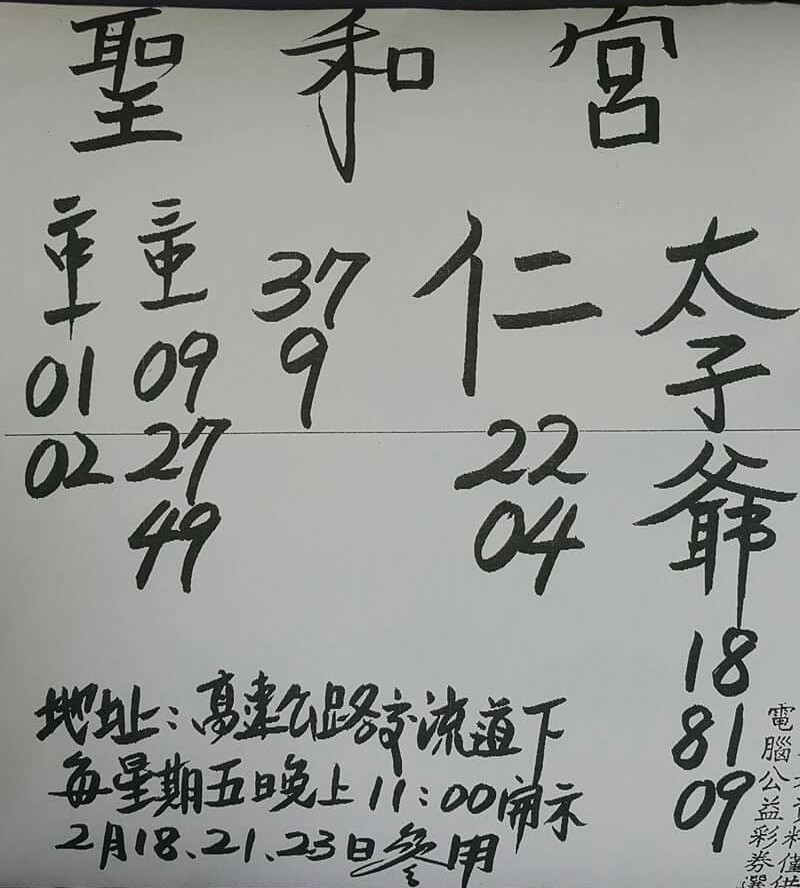 聖和宮
太子爺
18
81
09
仁
22
04
37
9
09
27
49
01
02
地址：高東公路交流道下
每星期五晚上11：00開示
2月18、21、23日參用
電腦公益彩券選
料僅供